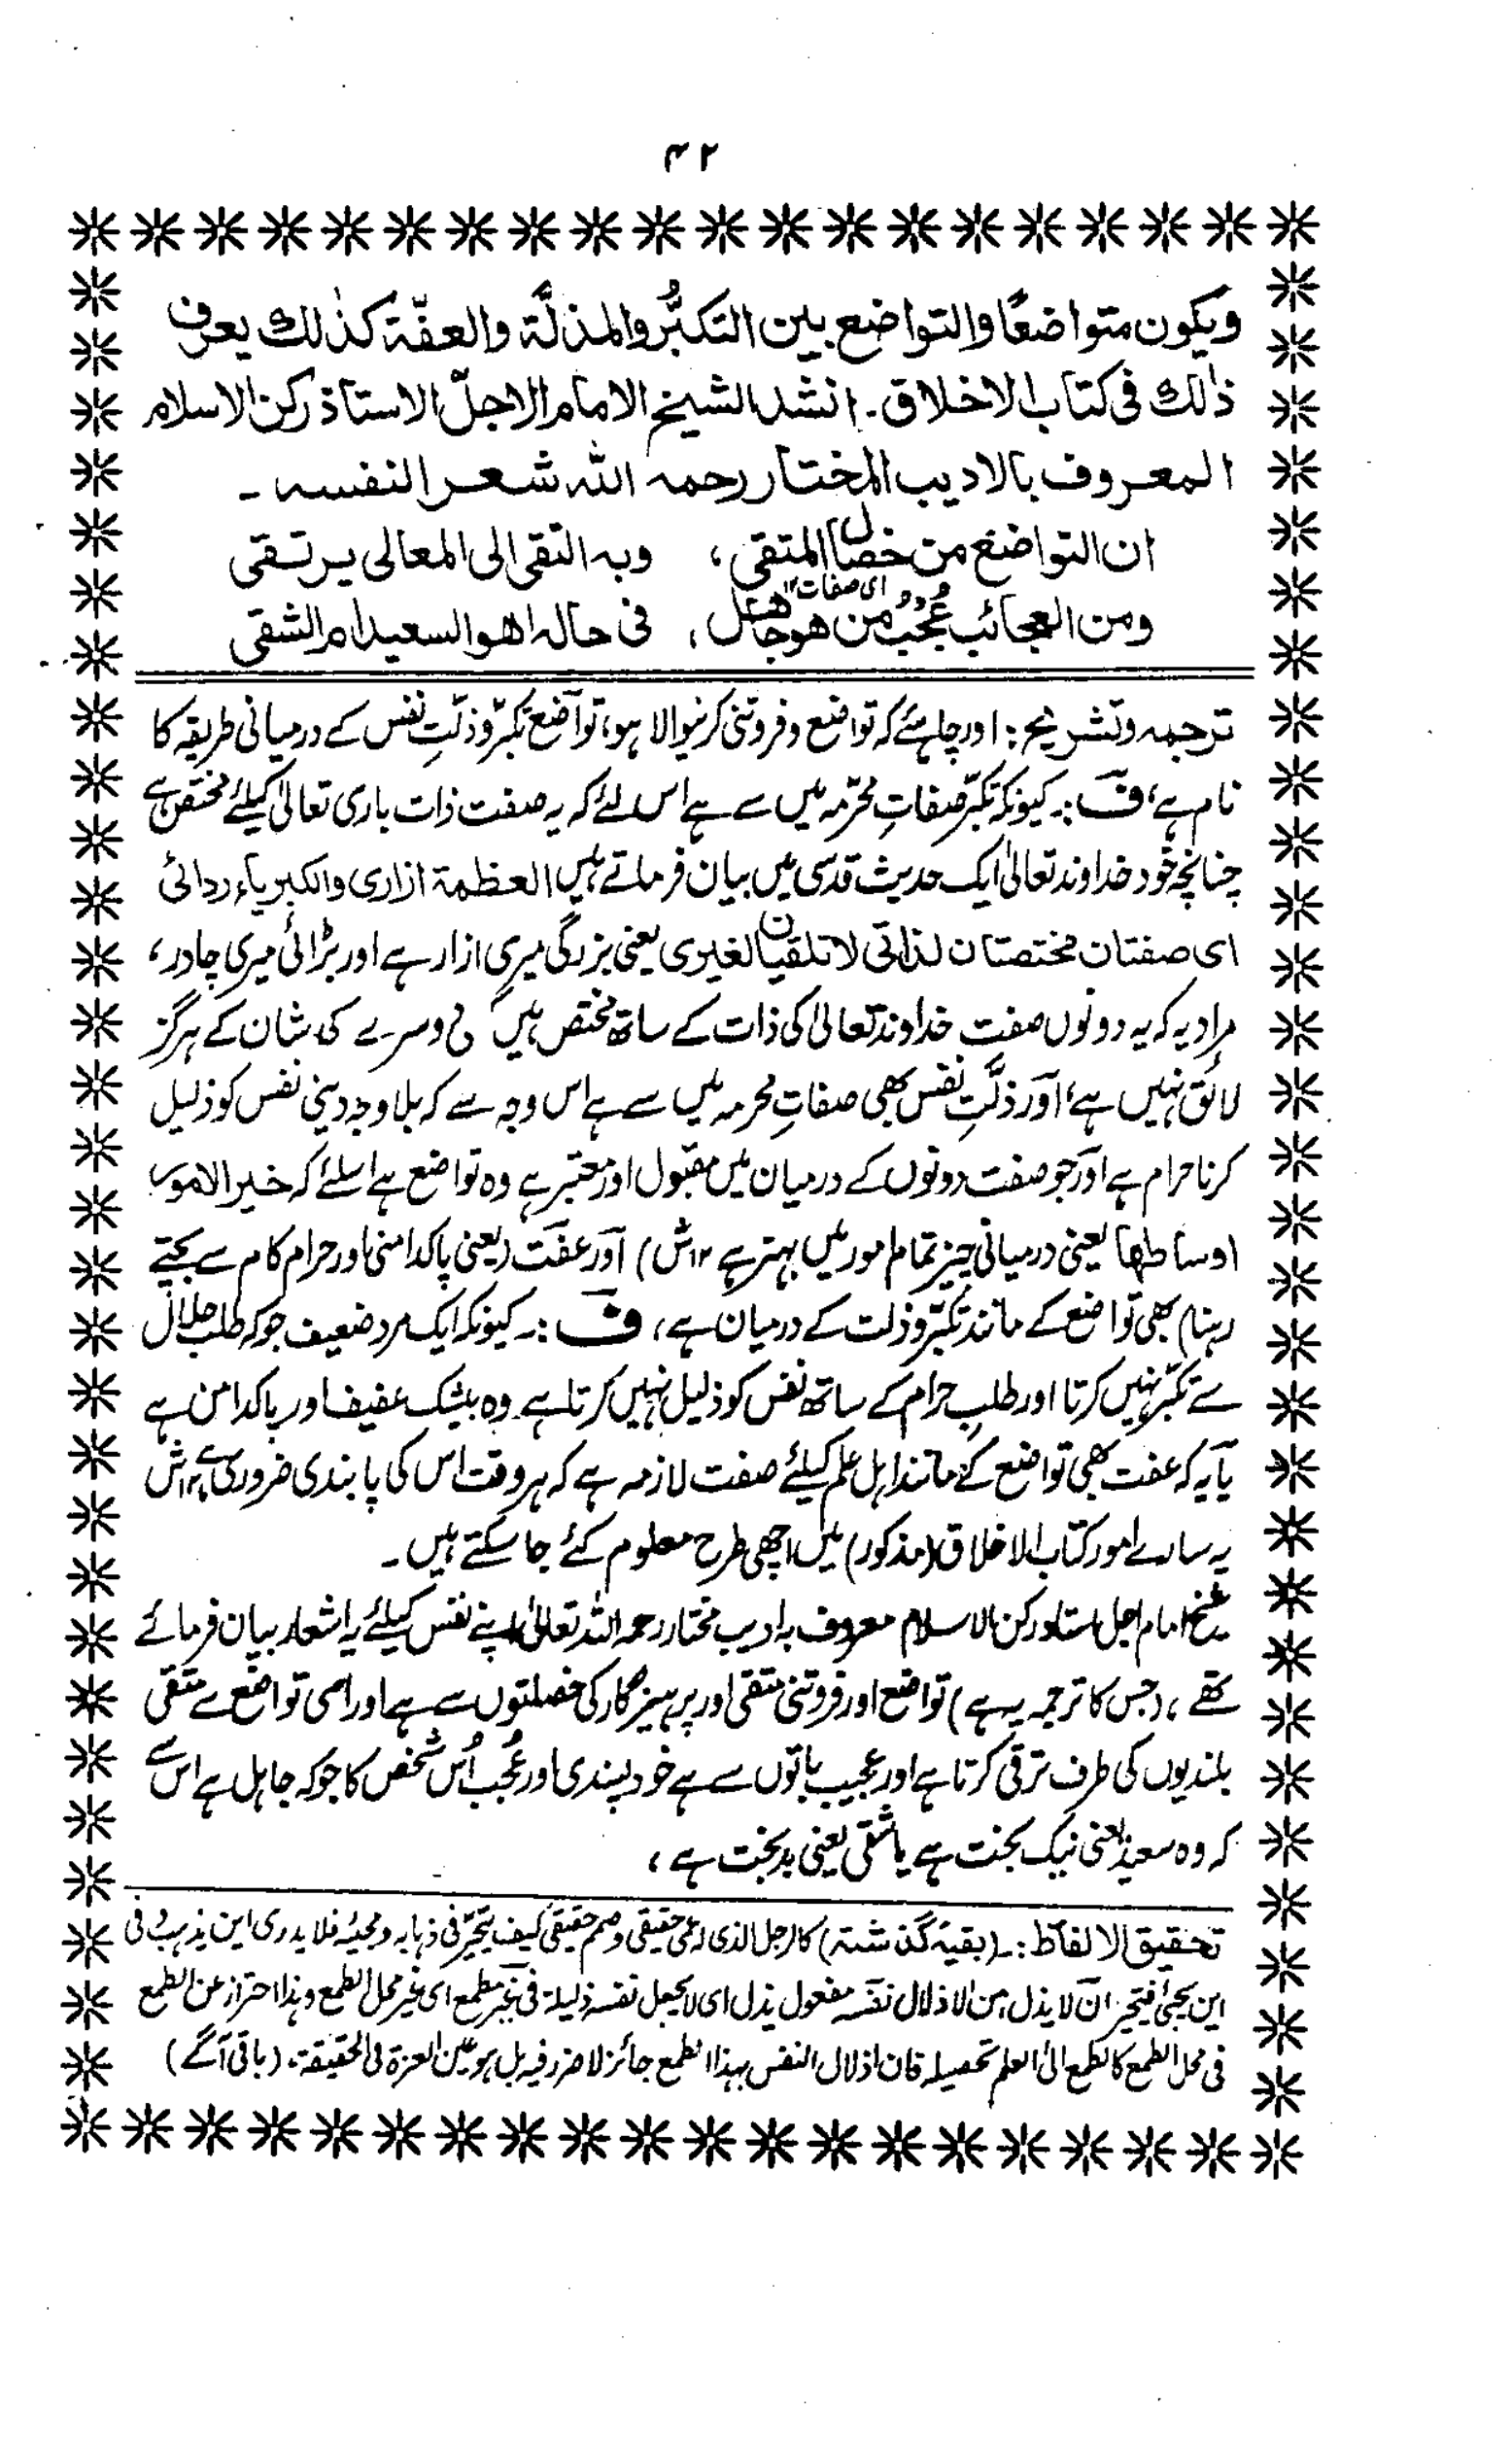 ۴۲
ويكون متواضعًا والتواضع بين التكبُّر والمذلَّة والعفّة كذٰلك يعرف
ذٰلك فى كتاب الاخلاق ۔ انشد الشيخ الامام الاجلّ الاستاذ ركن الاسلام
المعروف بالاديب المختار رحمہ اللہ شعرا لنفسہ ۔
ان التواضع من خصال المتقى ، وبہ التقى الى المعالى يرتقى
اى صفات ۱۲
ومن العجائب عُجْبُ من هو جاهل ، فى حالہ اهو السعيد ام الشقى
ترجمہ وتشریح : اور چاہئے کہ تواضع و فروتنی کرنیوالا ہو، تواضع تکبّر و ذلّتِ نفس کے درمیانی طریقہ کا
نام ہے ، ف :۔ کیونکہ تکبّر صفاتِ محرّمہ میں سے ہے اس لئے کہ یہ صفت ذات باری تعالیٰ کیلئے مختص ہے
چنانچہ خود خداوند تعالیٰ ایک حدیث قدسی میں بیان فرماتے ہیں العظمة ازاری والکبریاء ردائی
ای صفتان مختصتان لذاتی لا تلقیان لغیری یعنی بزرگی میری ازار ہے اور بڑائی میری چادر ،
مراد یہ کہ یہ دونوں صفت خداوند تعالیٰ کی ذات کے ساتھ مختص ہیں دوسرے کی شان کے ہرگز
لائق نہیں ہے ، اور ذلّتِ نفس بھی صفاتِ محرمہ میں سے ہے اس وجہ سے کہ بلا وجہ دینی نفس کو ذلیل
کرنا حرام ہے اور جو صفت دونوں کے درمیان میں مقبول اور معتبر ہے وہ تواضع ہے اسلئے کہ خیر الامور
اوساطھا یعنی درمیانی چیز تمام امور میں بہتر ہے ۱۲ش) اور عفّت (یعنی پاکدامنی اور حرام کام سے بچتے
رہنا) بھی تواضع کے مانند تکبّر و ذلت کے درمیان ہے ، ف :۔ کیونکہ ایک مرد ضعیف جو کہ طلب حلال
سے تکبّر نہیں کرتا اور طلبِ حرام کے ساتھ نفس کو ذلیل نہیں کرتا ہے وہ بیشک عفیف اور پاکدامن ہے
یا یہ کہ عفت بھی تواضع کے مانند اہل علم کیلئے صفت لازمہ ہے کہ ہر وقت اس کی پابندی ضروری ہے ۱۲ش
یہ سارے امور کتاب الاخلاق (مذکور) میں اچھی طرح معلوم کئے جا سکتے ہیں ۔
شیخ امام اجل استاد رکن الاسلام معروف بہ ادیب مختار رحمہ اللہ تعالیٰ اپنے نفس کیلئے یہ اشعار بیان فرمائے
تھے ، (جس کا ترجمہ یہ ہے) تواضع اور فروتنی متقی اور پرہیزگار کی خصلتوں سے ہے اور اسی تواضع سے متقی
بلندیوں کی طرف ترقی کرتا ہے اور عجیب باتوں سے ہے خود پسندی اور عُجب اُس شخص کا جو کہ جاہل ہے اس سے
کہ وہ سعید یعنی نیک بخت ہے یا شقی یعنی بدبخت ہے ،
تحقیق الالفاظ :۔ (بقیۂ گذشتہ) کالرجل الذی اعمی حقیقی وصم حقیقی کیف یتحیّر فی ذہابہ ومجیئہ فلا یدری این یذہب فی
این یجیٔ فیتحیر ان لا یذل من الاذلال نفسہ مفعول یذل ای لا یجعل نفسہ ذلیلة فی غیر مطمع ای غیر محل الطمع وہذا احتراز عن الطمع
فی محل الطمع کالطمع الی العلم تحصیلہ فان اذلال النفس بہذا الطمع جائز لا ضرر فیہ بل ہو عین العزة فی الحقیقة ۔ (باقی آگے)